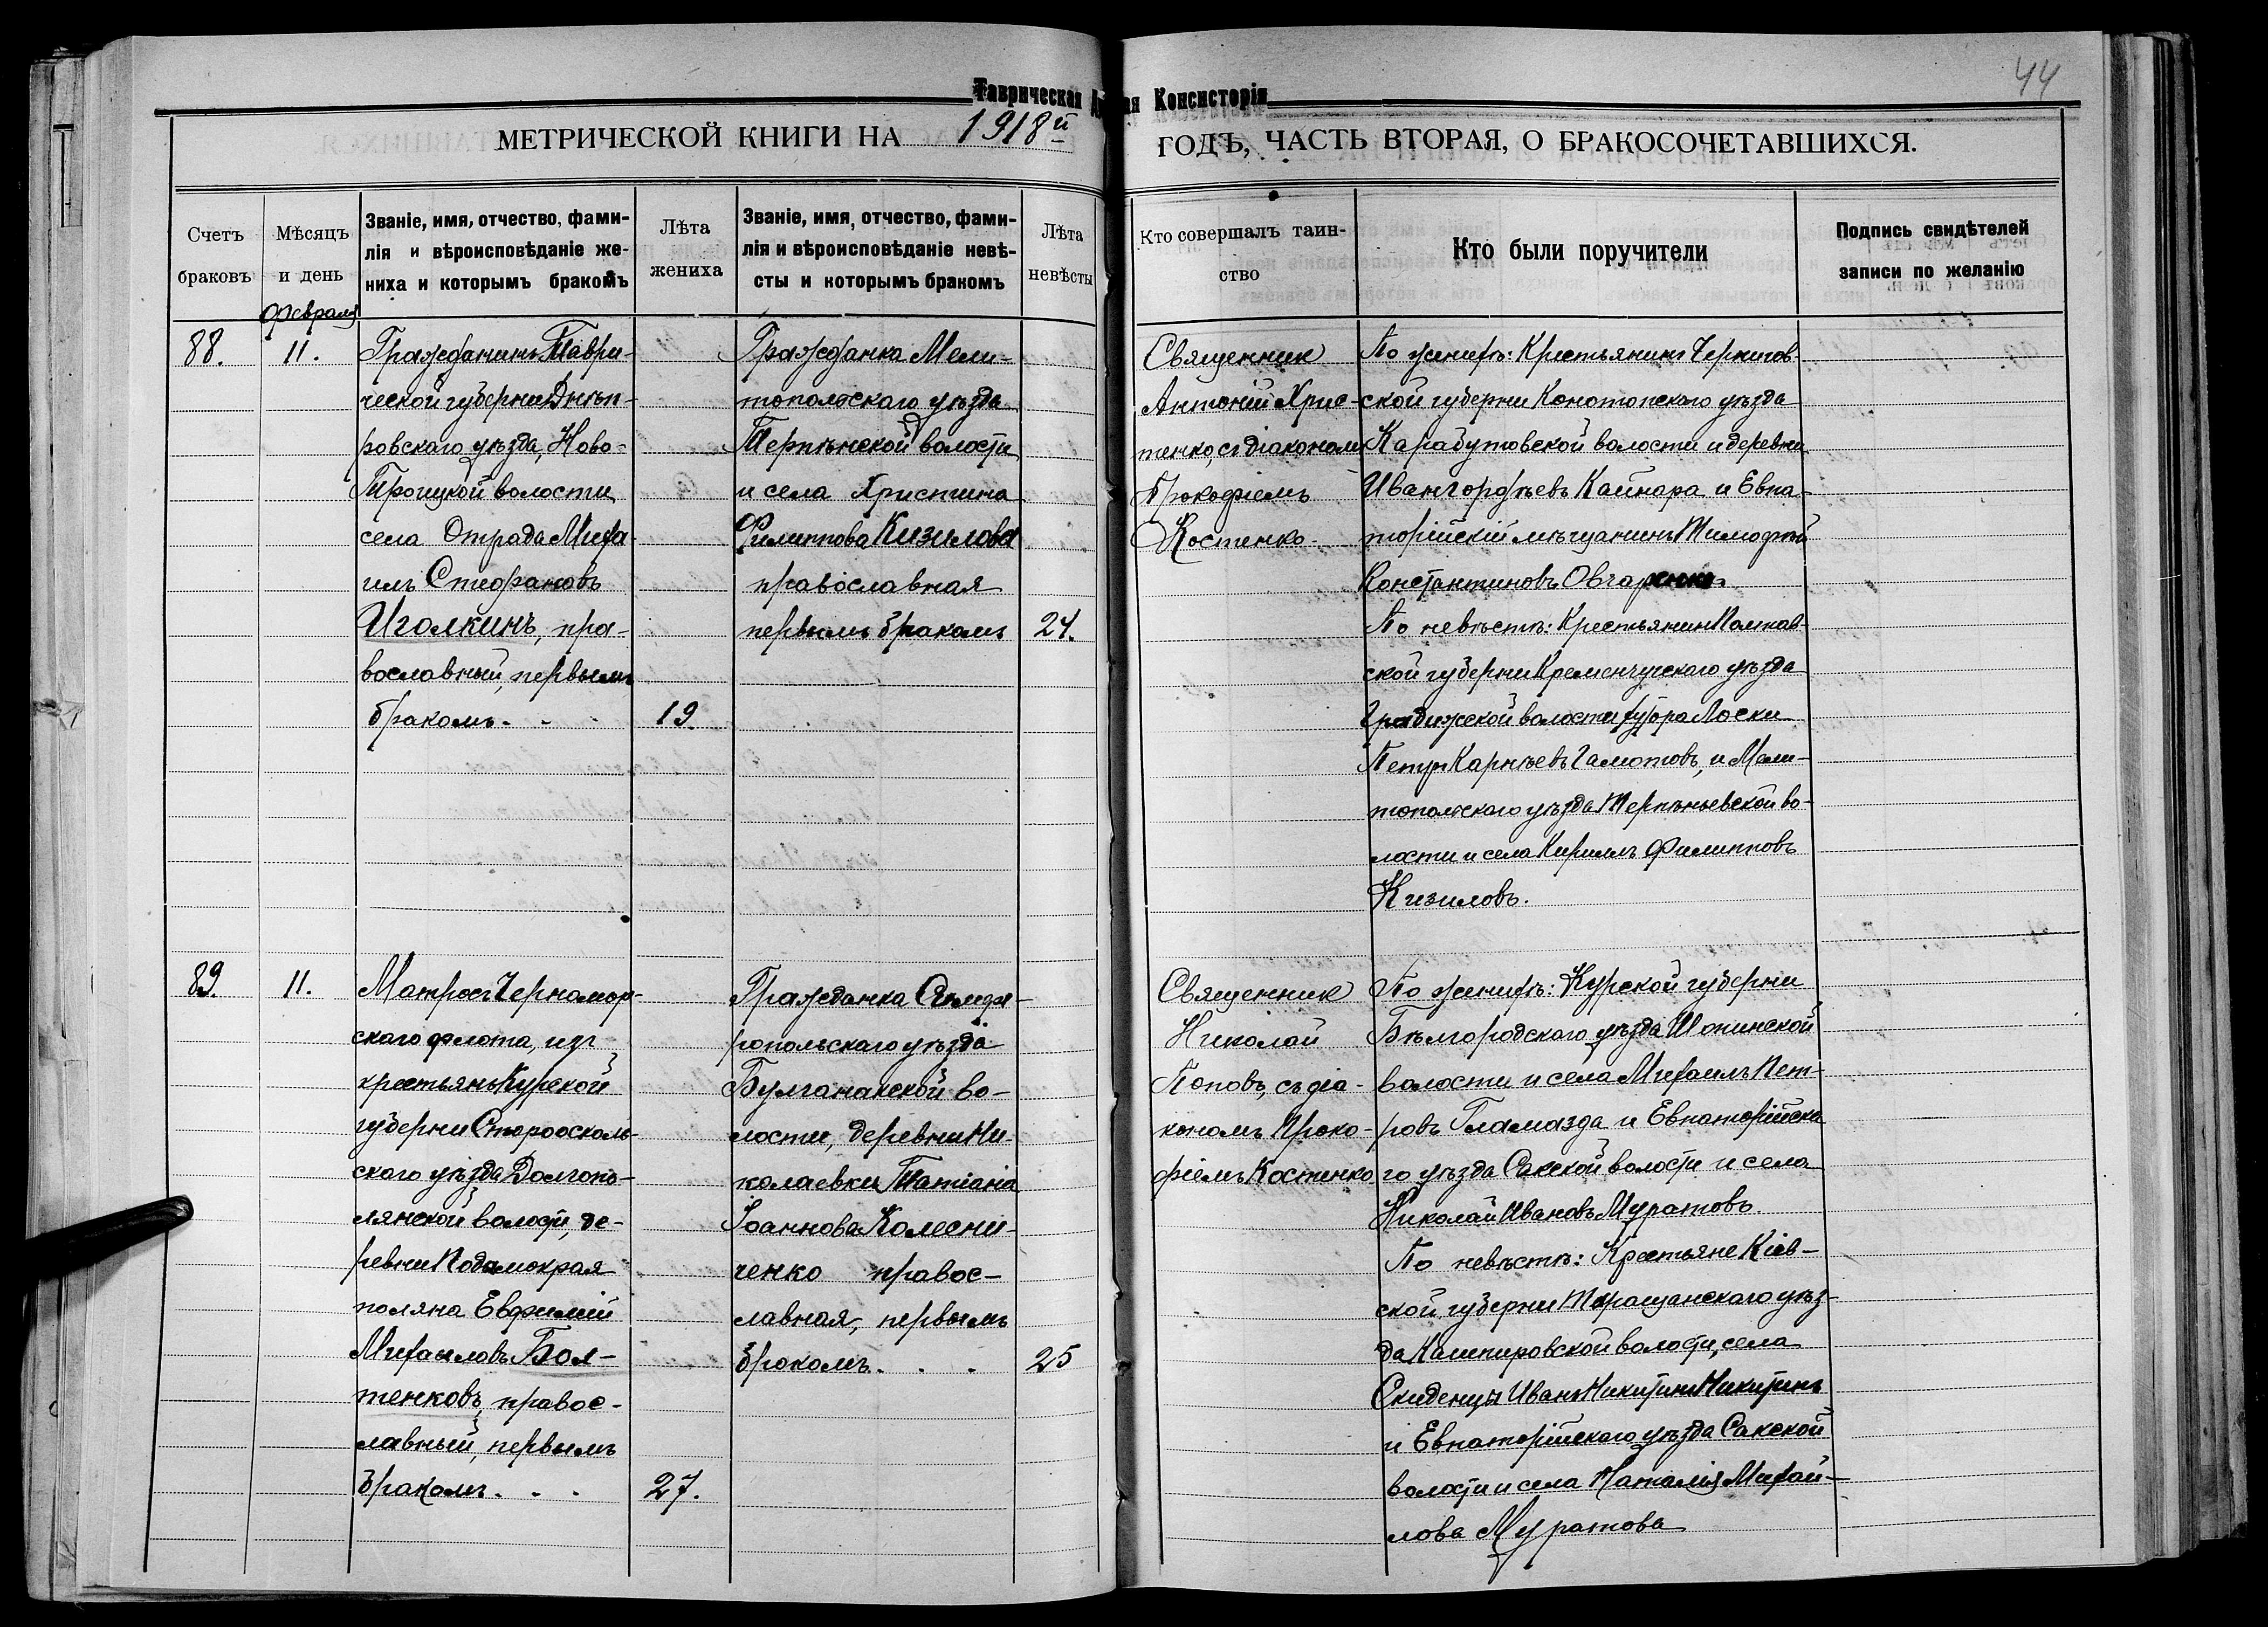 44
Таврическая
ая Консисторія
МЕТРИЧЕСКОЙ КНИГИ НА 1918й
ГОДЪ, ЧАСТЬ ВТОРАЯ, О БРАКОСОЧЕТАВШИХСЯ.
Счетъ
браковъ
Мѣсяцъ
и день
Званіе, имя, отчество, фами-
лія и вѣроисповѣданіе же-
ниха и которымъ бракомъ
Лѣта
жениха
Званіе, имя, отчество, фами-
лія и вѣроисповѣданіе невѣ-
сты и которымъ бракомъ
Лѣта
невѣсты
Кто совершалъ таин-
ство
Кто были поручители
Подпись свидѣтелей
записи по желанію
Февраля
88.
11.
Гражданинъ Таври-
ческой губерніи Днѣп-
ровскаго уѣзда, Ново-
Троицкой волости
села Отрада Миха-
илъ Стефановъ
Иголкинъ, пра-
вославный, первымъ
бракомъ. - -
19
Гражданка Мели-
топольскаго уѣзда
Терпѣнской волости
и села Христина
Филиппова Кизилова
православная
первымъ бракомъ
24.
Священникъ
Антоній Хрис-
тенко, съ діакономъ
Прокофіемъ
Костенко.
По женихѣ: Крестьянинъ Чернигов-
ской губерніи Конотопскаго уѣзда
Карабутовской волости и деревни
Ивангородъ Кайнара и Евпа-
торійскій мѣщанинъ Тимофей
Константиновъ Овчаренко.
По невѣстѣ: Крестьянинъ Полтав-
ской губерніи Кременчугскаго уѣзда
Градижской волости хутора Лоски
Петръ Карнѣевъ Гамотовъ, и Мели-
топольскаго уѣзда Терпѣньевской во-
лости и села Кириллъ Филипповъ
Кизиловъ.
89.
11.
Матросъ Черномор-
скаго флота, изъ
крестьянъ Курской
губерніи Старооскль-
скаго уѣзда Долгопо-
лянской волости, де-
ревни
поляна Евфимій
Михаиловъ Бол-
тенковъ, правос-
лавный, первымъ
бракомъ. - -
27.
Гражданка Симфе-
ропольскаго уѣзда
Булганакской во-
лости, деревни Ни-
колаевки Татіана
Іоаннова Колесни-
ченко правос-
лавная, первымъ
бракомъ. - -
25
Священникъ
Николай
Поповъ, съ діа-
кономъ Проко-
фіемъ Костенко
По женихѣ: Курской губерніи
Бѣлгородскаго уѣзда Шопинской
волости и села Михаилъ Пет-
ровъ Гламазда и Евпаторійска
го уѣзда Сакской волости и села
Николай Ивановъ Муратовъ
По невѣстѣ: Крестьяне Кіев-
ской губерніи Таращанскаго уѣз-
да Кашперовской волости, села
Скиденцы Иванъ Никитинъ Никитинъ
и Евпаторійскаго уѣзда Сакской
волости и села Наталія Михай-
лова Муратова